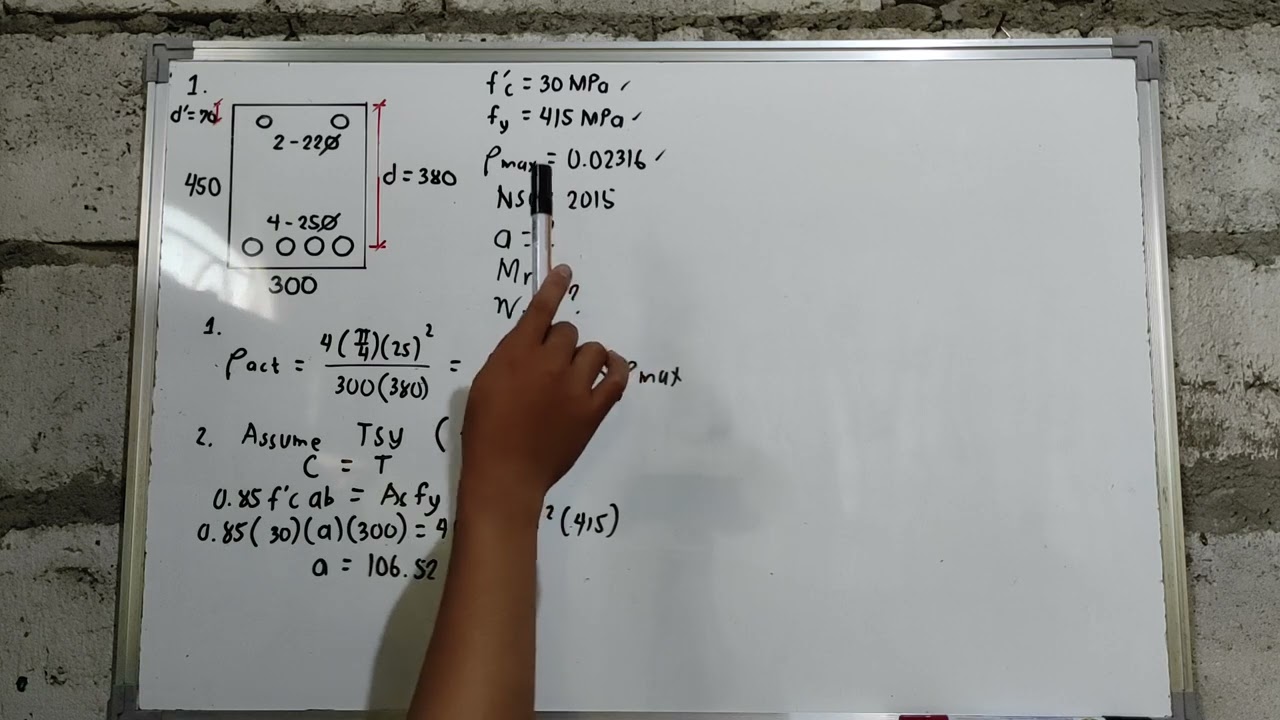 1.
d'=70
2-22Ø
450
d = 380
4-25Ø
300
f'c = 30 MPa ✓
fy = 415 MPa ✓
ρmax = 0.02316 ✓
2015
a =
?
1.
ρact = 4(π/4)(25)² / 300(380) =
ρmax
2. Assume TSY (
C = T
0.85 f'c ab = As fy
0.85(30)(a)(300) = 4 ² (415)
a = 106.52